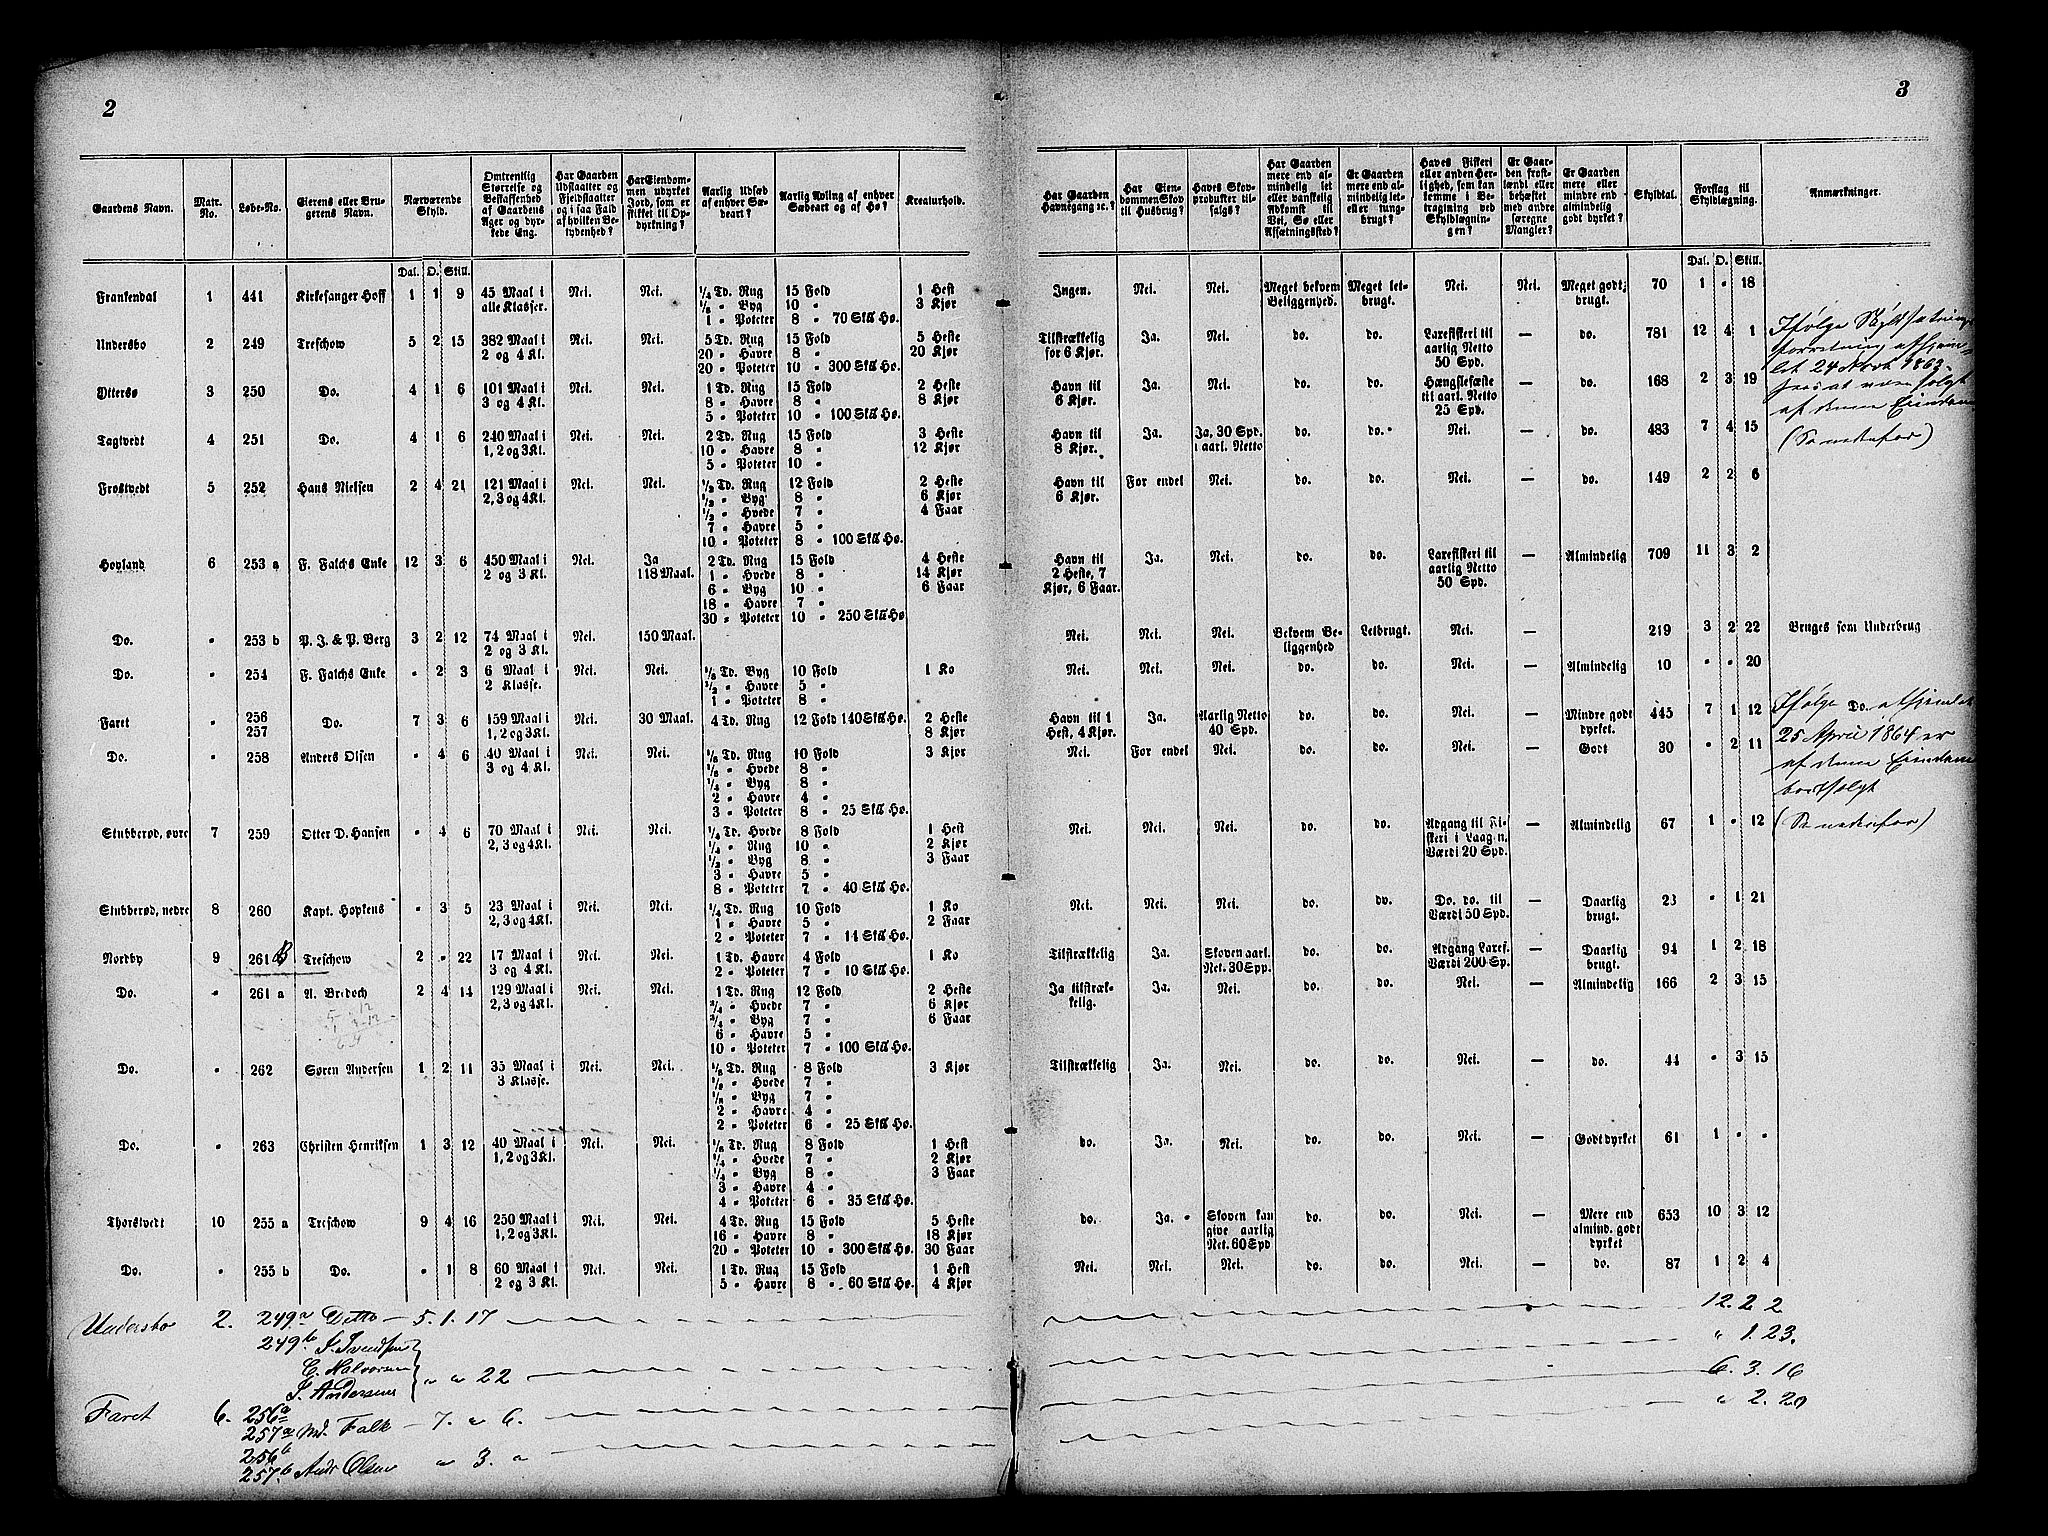 2
3
Gaardens Navn.
Matr. No.
Løbe-No.
Eierens eller Brugerens Navn.
Nærværende Skyld.
Omtrentlig Størrelse og Beskaffenhed af Gaardens Ager og dyrkede Eng.
Har Gaarden Udslaatter og Fjeldslaatter og i saa Fald af hvilken Betydenhed?
Har Eiendommen udyrket Jord, som er skikket til Opdyrkning?
Aarlig Udsæd af enhver Sædeart?
Aarlig Avling af enhver Sædeart og af Hø?
Kreaturhold.
Har Gaarden Havnegang ɾc.?
Har Eiendommen Skov til Husbrug?
Haves Skovprodukter tilsalgs?
Har Gaarden mere end almindelig let eller vanskelig Adkomst til Vei, Sø eller Afsætningssted?
Er Gaarden mere end almindelig let- eller tungbrugt?
Haves Fiskeri eller anden Herlighed, som kan komme i Betragtning ved Skyldlægningen?
Er Gaarden frostlændt eller behæftet med andre særegne Mangler?
Er Gaarden mere eller mindre end almindelig godt dyrket?
Skyldtal.
Forslag til Skyldlægning.
Anmærkninger.
Dal. O. Skill. Dal. O. Skill.
Frankendal 1 441 Kirkesanger Hoff 1 1 9 45 Maal i Nei. Nei. ¼ Td. Rug 15 Fold 1 Hest Ingen. Nei. Nei. Meget bekvem Meget let- Nei. Nei. Meget godt 70 1 " 18
alle Klasser. ⅛ " Byg 10 " 3 Kjør Beliggenhed. brugt. brugt.
1 " Poteter 8 " 70 Sk℔ Hø.
Undersbo 2 249 Treschow 5 2 15 382 Maal i Nei. Nei. 5 Td. Rug 15 Fold 5 Heste Tilstrækkelig Ja. Nei. do. do. Laxefiskeri til — do. 781 12 4 1
2 og 4 Kl. 20 " Havre 8 " 20 Kjør for 6 Kjør. aarlig Netto
20 " Poteter 10 " 300 Sk℔ Hø. 50 Spd.
Yttersø 3 250 Do. 4 1 6 101 Maal i Nei. Nei. 1 Td. Rug 15 Fold 2 Heste Havn til Ja. Nei. do. do. Hængslefæste — do. 168 2 3 19
3 og 4 Kl. 8 " Havre 8 " 8 Kjør 6 Kjør. til aarl. Netto
5 " Poteter 10 " 100 Sk℔ Hø. 25 Spd.
Tagtvedt 4 251 Do. 4 1 6 240 Maal i Nei. Nei. 2 Td. Rug 15 Fold 3 Heste Havn til Ja. Ja, 30 Spd. do. do. Nei. — do. 483 7 4 15
1, 2 og 3 Kl. 10 " Havre 8 " 12 Kjør 8 Kjør. i aarl. Netto
5 " Poteter 10 "
Frostvedt 5 252 Hans Nielsen 2 4 21 121 Maal i Nei. Nei. ½ Td. Rug 12 Fold 2 Heste Havn til For endel Nei. do. do. Nei. — do. 149 2 2 6
2, 3 og 4 Kl. ½ " Byg 8 " 6 Kjør 6 Kjør.
½ " Hvede 7 " 4 Faar
7 " Havre 5 "
10 " Poteter 8 " 100 Sk℔ Hø.
Hovland 6 253 a F. Falchs Enke 12 3 6 450 Maal i Nei. Ja 2 Td. Rug 15 Fold 4 Heste Havn til Ja. Nei. do. do. Laxefiskeri til — Almindelig 709 11 3 2
2 og 3 Kl. 118 Maal. 1 " Hvede 8 " 14 Kjør 2 Heste, 7 aarlig Netto
6 " Byg 10 " 6 Faar Kjør, 6 Faar. 50 Spd.
18 " Havre 7 "
30 " Poteter 10 " 250 Sk℔ Hø
Do. " 253 b P. J. & P. Berg 3 2 12 74 Maal i Nei. 150 Maal. Nei. Nei. Nei. Bekvem Be- Letbrugt. Nei. — 219 3 2 22 Bruges som Underbrug
2 og 3 Kl. liggenhed
Do. " 254 F. Falchs Enke " 2 3 6 Maal i Nei. Nei. ⅛ Td. Byg 10 Fold 1 Ko Nei. Nei. Nei. do. do. Nei. — Almindelig 10 " " 20
2 Klasse. ½ " Havre 5 "
1 " Poteter 8 "
Faret " 256 Do. 7 3 6 159 Maal i Nei. 30 Maal. 4 Td. Rug 12 Fold 140 Sk℔ Hø. 2 Heste Havn til 1 Ja. Aarlig Netto do. do. Nei. — Mindre godt 445 7 1 12
257 1, 2 og 3 Kl. 8 Kjør Hest, 4 Kjør. 40 Spd. dyrket.
Do. " 258 Anders Olsen " 4 6 40 Maal i Nei. Nei. ⅛ Td. Rug 10 Fold 3 Kjør Nei. For endel Nei. do. do. Nei. — Godt 30 " 2 11
3 og 4 Kl. ⅛ " Hvede 8 "
¼ " Byg 8 "
2 " Havre 4 "
3 " Poteter 8 " 25 Sk℔ Hø.
Stubberød, øvre 7 259 Otter D. Hansen " 4 6 70 Maal i Nei. Nei. ¼ Td. Hvede 8 Fold 1 Hest Nei. Nei. Nei. do. do. Adgang til Fi- — Almindelig 67 1 " 12
2, 3 og 4 Kl. ¼ " Rug 10 " 2 Kjør skeri i Laagen.
½ " Byg 8 " 3 Faar Værdi 20 Spd.
3 " Havre 5 "
8 " Poteter 7 " 40 Sk℔ Hø.
Stubberød, nedre 8 260 Kapt. Hopkens " 3 5 23 Maal i Nei. Nei. ¼ Td. Rug 10 Fold 1 Ko Nei. Nei. Nei. do. do. Do. do. til — Daarlig 23 " 1 21
2, 3 og 4 Kl. 1 " Havre 5 " 2 Faar Værdi 50 Spd. brugt.
2 " Poteter 7 " 14 Sk℔ Hø.
Nordby 9 261 B Treschow 2 " 22 17 Maal i Nei. Nei. 1 Td. Havre 4 Fold 1 Ko Tilstrækkelig Ja. Skoven aarl. do. do. Adgang Laxef. — Daarlig 94 1 2 18
3 og 4 Kl. 2 " Poteter 7 " 10 Sk℔ Hø. Net. 30 Spp. Værdi 200 Sp. brugt.
Do. " 261 a A. Bredoch 2 4 14 129 Maal i Nei. Nei. 1 Td. Rug 12 Fold 2 Heste Ja tilstræk- Ja. Nei. do. do. Nei. — Almindelig 166 2 3 15
2, 3 og 4 Kl. ¾ " Hvede 7 " 6 Kjør kelig.
¾ " Byg 7 " 6 Faar
6 " Havre 5 "
10 " Poteter 7 " 100 Sk℔ Hø.
Do. " 262 Søren Andersen 1 2 11 35 Maal i Nei. Nei. ⅛ Td. Rug 8 Fold 3 Kjør Tilstrækkelig Ja. Nei. do. do. Nei. — do. 44 " 3 15
3 Klasse. ⅛ " Hvede 7 "
⅛ " Byg 7 "
2 " Havre 4 "
2 " Poteter 6 " 25 Sk℔ Hø.
Do. " 263 Christen Henriksen 1 3 12 40 Maal i Nei. Nei. ⅛ Td. Rug 8 Fold 1 Hest do. Ja. Nei. do. do. Nei. — Godt dyrket 61 1 " "
1, 2 og 3 Kl. ¼ " Hvede 7 " 2 Kjør
¼ " Byg 8 " 3 Faar
3 " Havre 4 "
4 " Poteter 6 " 35 Sk℔ Hø.
Thorstvedt 10 255 a Treschow 9 4 16 250 Maal i Nei. Nei. 4 Td. Rug 15 Fold 5 Heste do. Ja. Skoven kan do. do. Nei. — Mere end 653 10 3 12
1, 2 og 3 Kl. 16 " Havre 8 " 18 Kjør give aarlig almind. godt
20 " Poteter 10 " 300 Sk℔ Hø. 30 Faar Net. 60 Spd dyrket
Do. " 255 b Do. " 1 8 60 Maal i Nei. Nei. 1 Td. Rug 15 Fold 1 Hest Nei. Nei. Nei. do. do. Nei. — do. 87 1 2 4
2 og 3 Kl. 5 " Havre 8 " 60 Sk℔ Hø. 4 Kjør
Ifølge Skyldsætnings
forretning afhjem=
let 24 1863
af denne Eiendom
(Se nedenfor)
Ifølge Do. afhjemlet
25 April 1864 er
af denne Eiendom
bortsolgt
(Se nedenfor)
Undersbo 2. 249 a Ditto — 5. 1. 17 12. 2 2
249 b J. Svendsen " 1. 23.
C. Halvorsen " " 22 6. 3. 16
J. Andersen
Faret 6. 256 a " 2. 20
257 a Md. Falk — 7. " 6.
256 b
257 b And: Olsen " 3. "